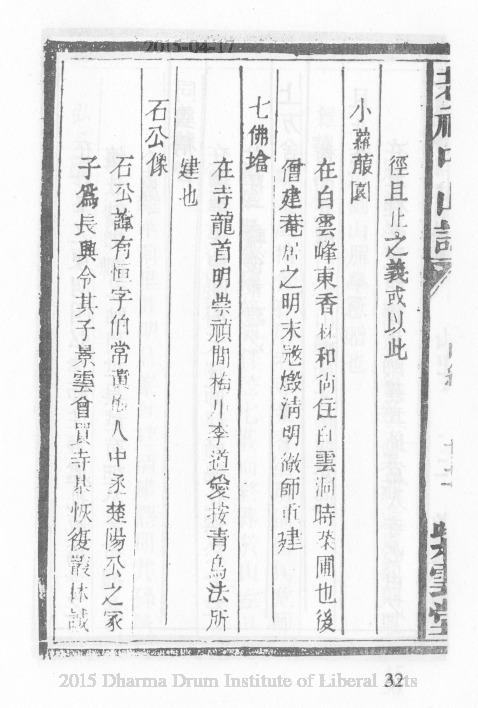 2015-04-17
徑且止之義或以此
小蘿蔔園
在白雲峰東香林和尚住白雲洞時菜圃也後
僧建菴居之明末遞燬淸明澈師重建
七佛墖
在寺龍首明崇禎間梅川李道愛按靑烏法所
建也
石公像
石公諱有恒字伯常黃梅人中丞楚陽公之冢
子爲長興令其子景雲曾買寺基恢復叢林誠
紫雲堂
32
2015 Dharma Drum Institute of Liberal Arts